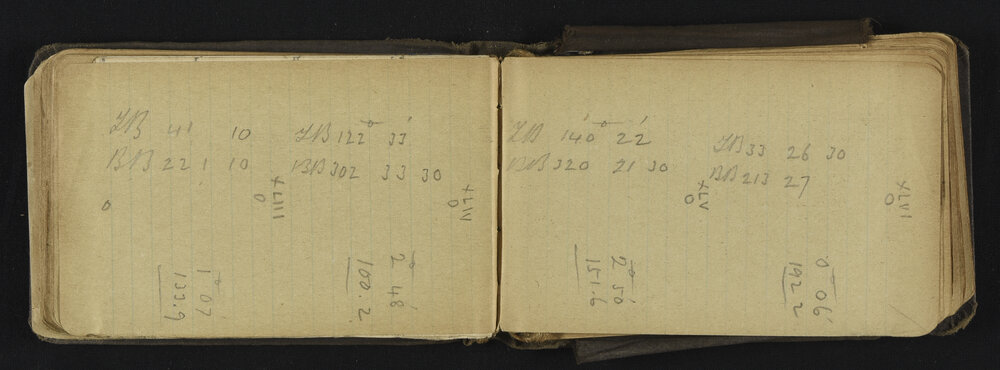 FB 41 10
BB 221 10
0
XLIII
0
1° 07
133.9
FB 122° 33'
BB 302 33 30
XLIV
0
2° 48'
100.2
FB 140° 22'
BB 320 21 30
XLV
0
2° 50'
151.6
FB 33 26 30
BB 213 27
XLVI
0
0° 06'
192.2